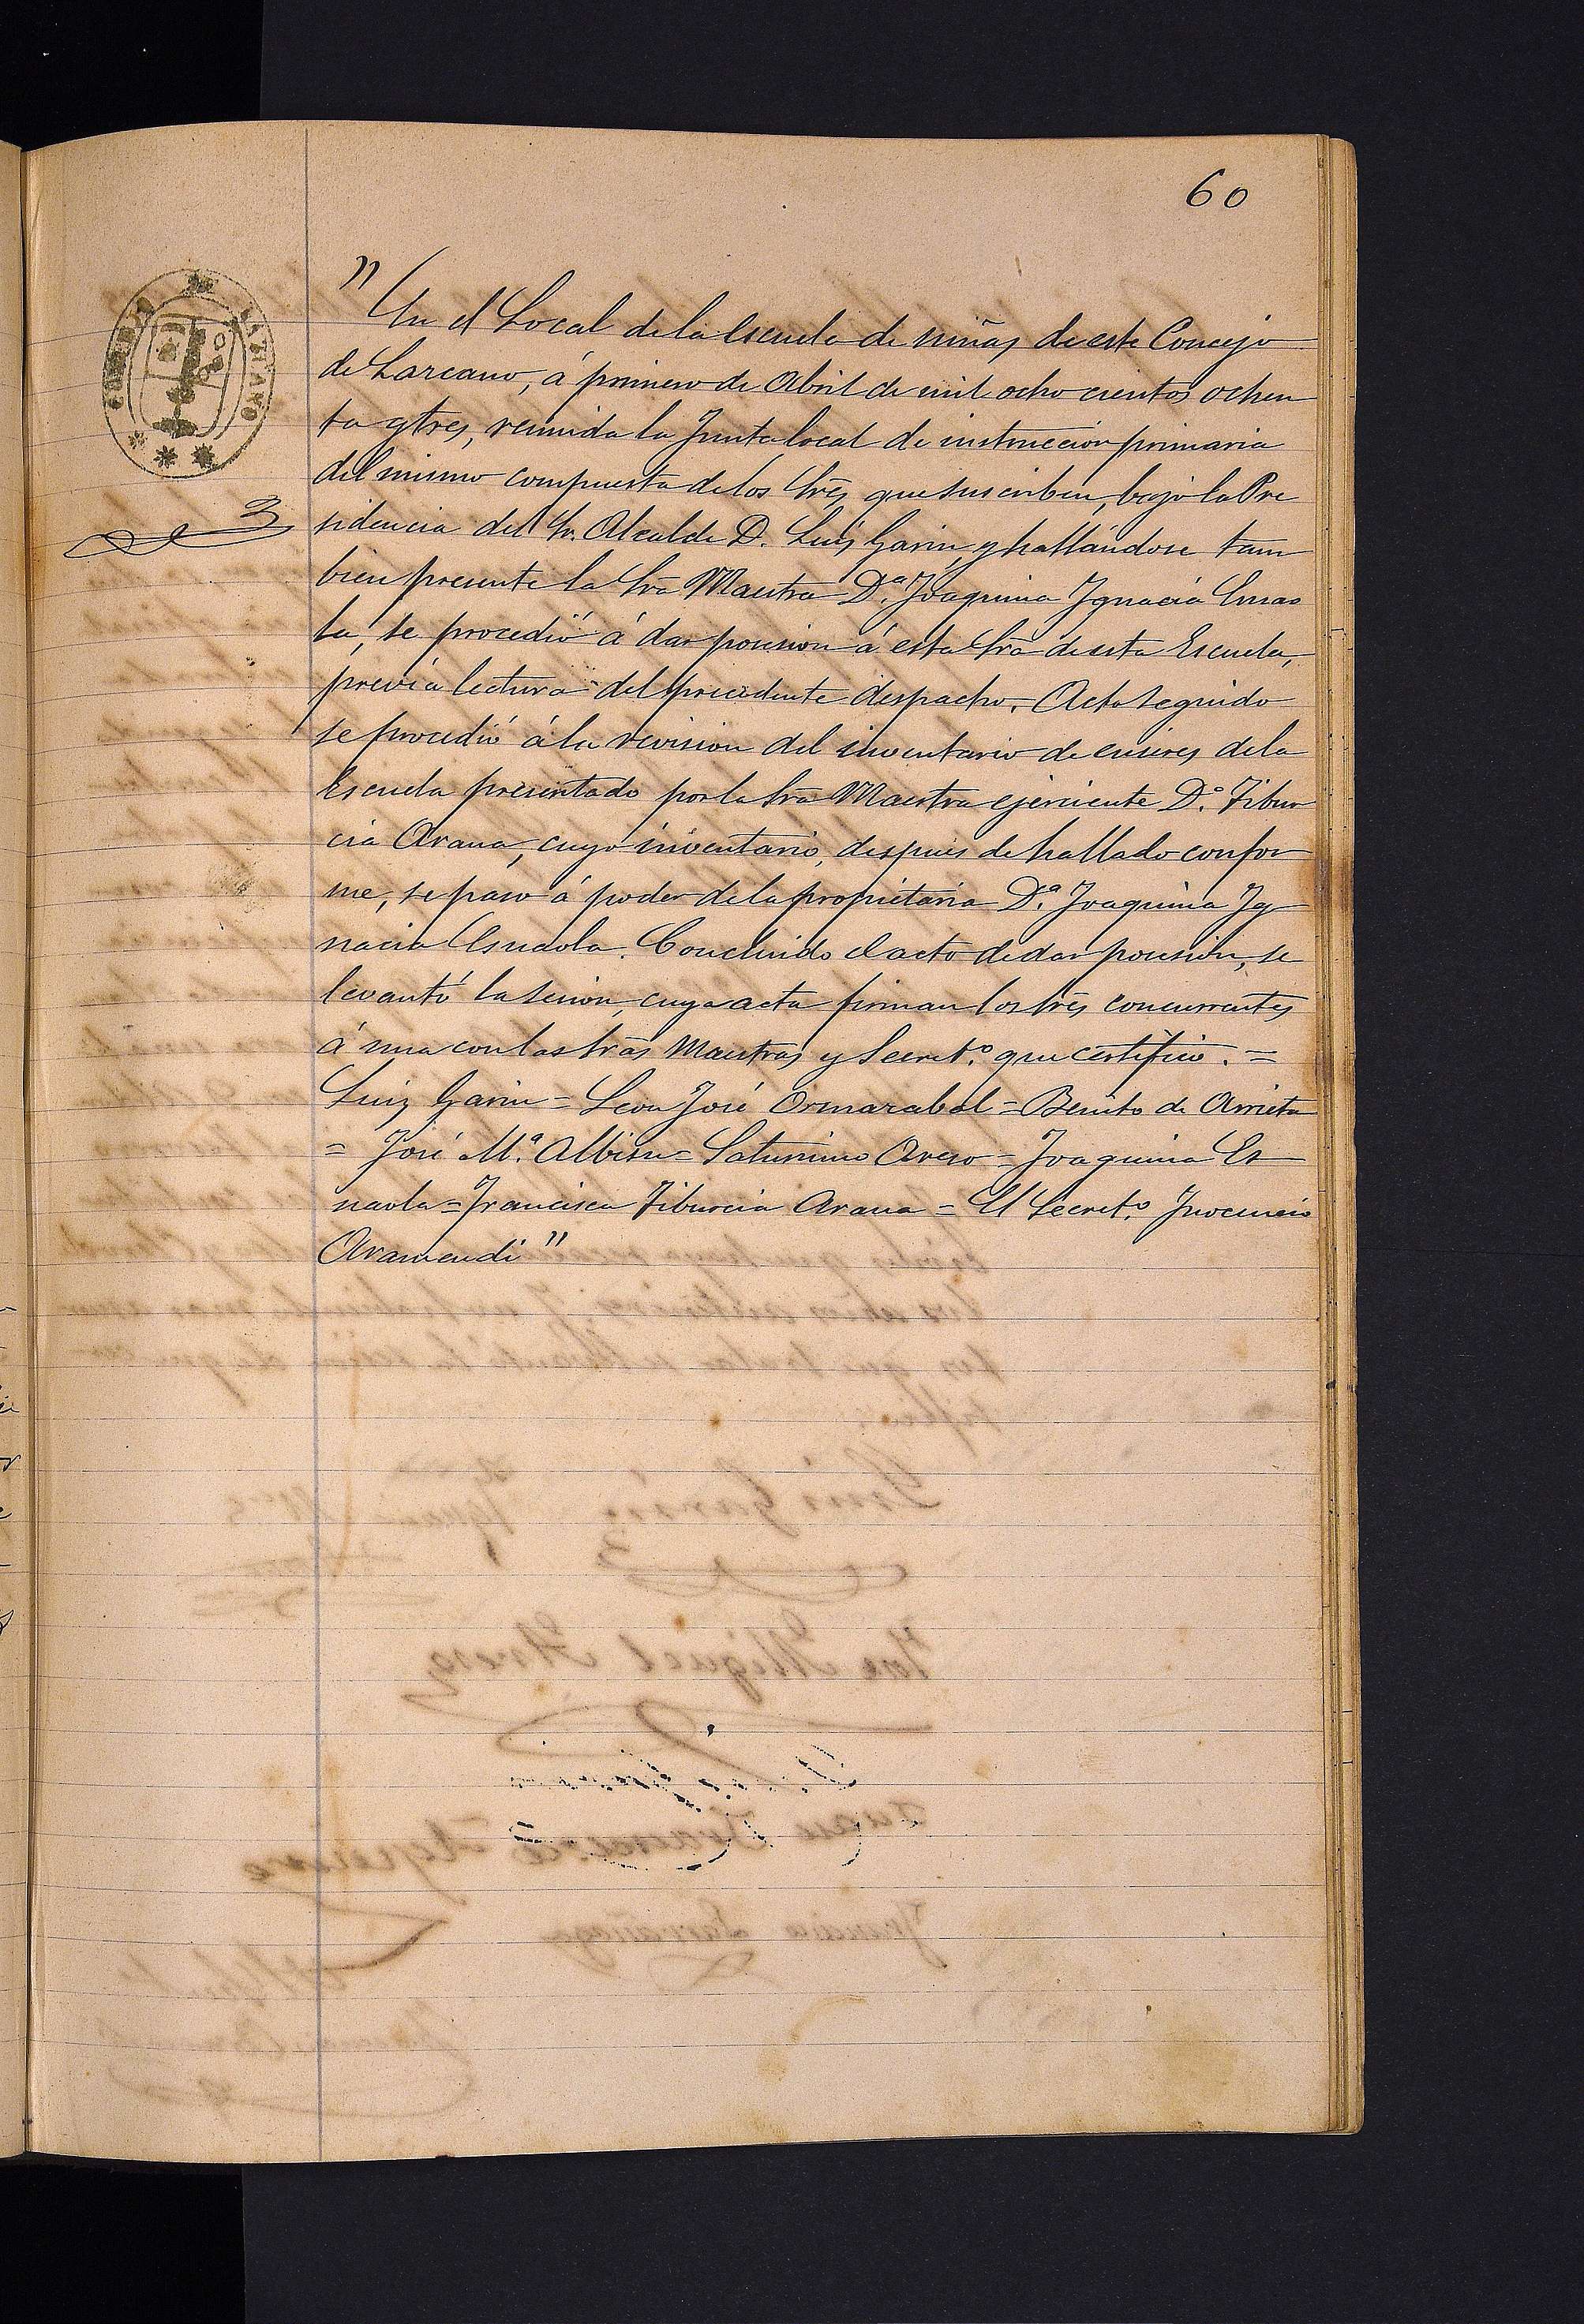 60
" En el Local de la Escuela de niñas de este Concejo
de Lazcano, á primero de Abril de mil ochocientos ochen
ta y tres, reunida la Junta local de instruccion primaria
del mismo compuesta de los Sres que suscriben, bajo la Pre
sidencia del Sr. Alcalde D. Luis Garin, y hallándose tam
bien presente la Sra Maestra D.ª Joaquina Ygnacia Esnao
la, se procedió á dar posesion á esta Sra de esta Escuela,
previa lectura del precedente despacho. Acto seguido
se procedió á la revision del inventario de enseres de la
Escuela presentado por la Sra Maestra ejerciente D.ª Tibur
cia Arana, cuyo inventario, despues de hallado confor
me, se paso á poder de la propietaria D.ª Joaquina Yg
nacia Esnaola. Concluido el acto de dar posesion, se
levantó la sesion, cuya acta firman los Sres concurrentes
á una con las Sras Maestras y Secret.º que certifico. =
Luis Garin = Leon José Ormazabal = Benito de Arrieta
= José M.ª Albisu = Saturnino Areso = Joaquina Es
naola = Francisca Tiburcia Arana = El Secret.º Ynocencio
Aramendi "